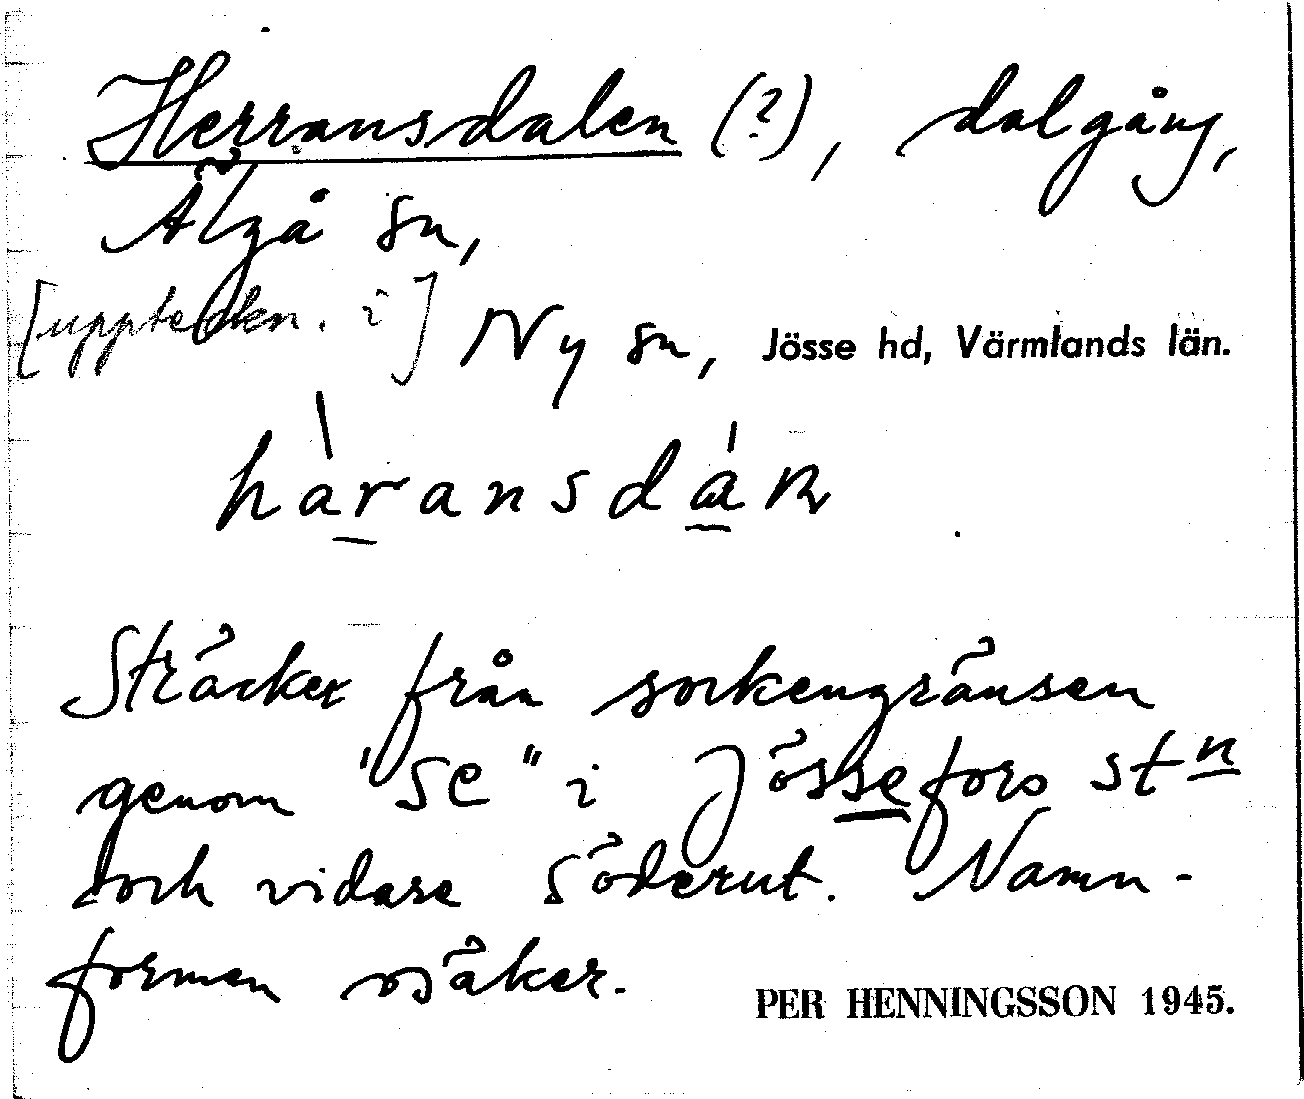 Herransdalen (?), dalgång,
Älgå sn,
[uppteckn. i] Ny sn, Jösse hd, Värmlands län.
sträcker från sockengränsen
genom "Se" i Jössefors stn
och vidare söderut. Namn-
formen osäker.
PER HENNINGSSON 1945.